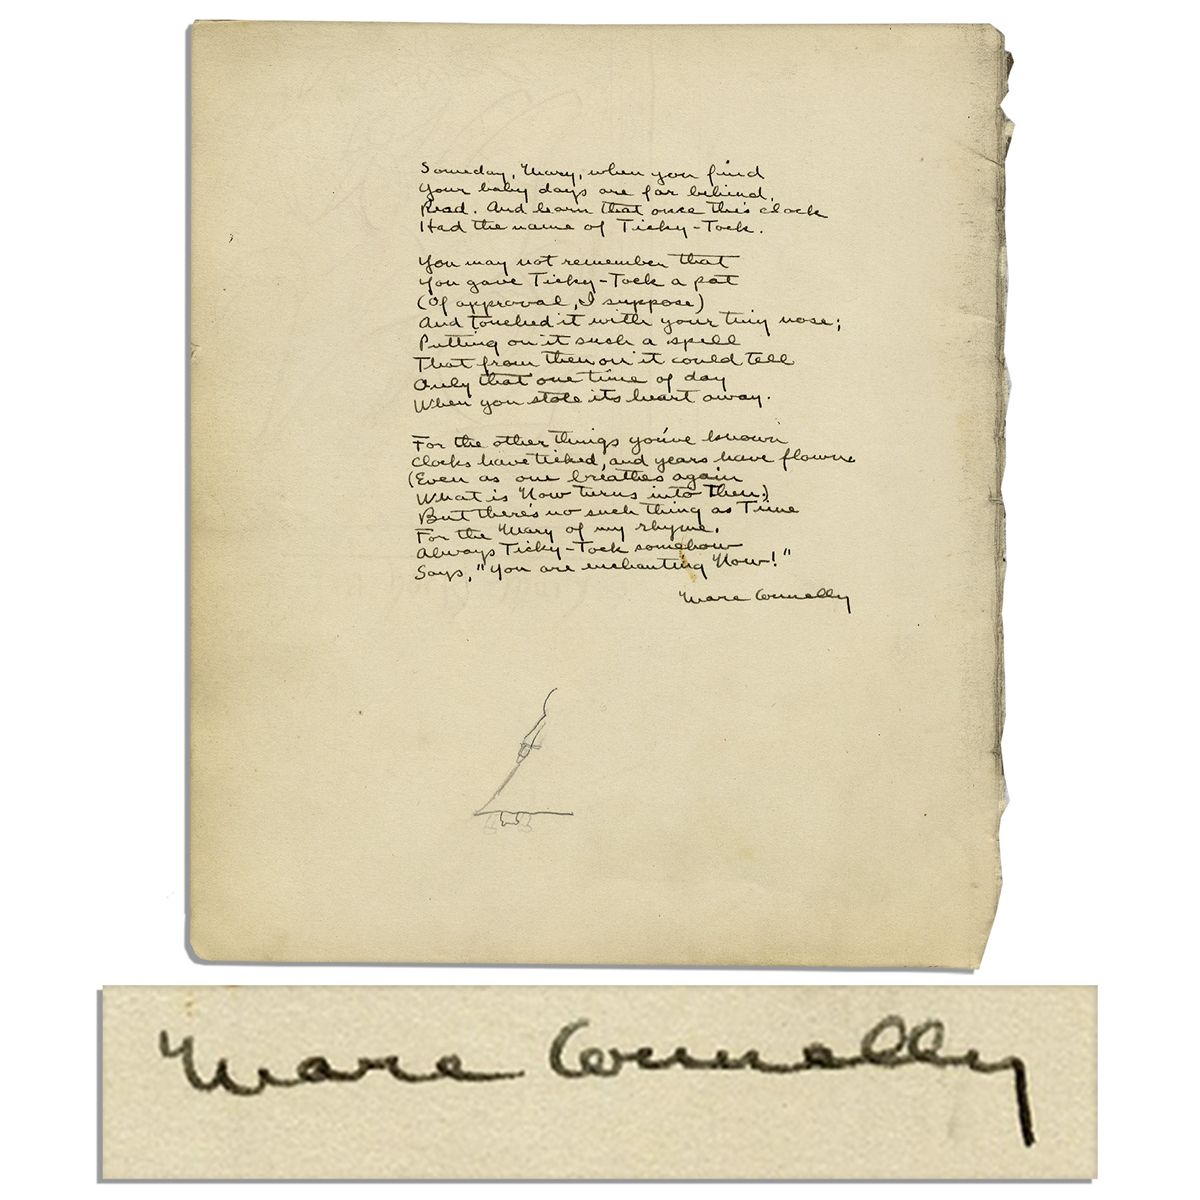 Someday, Mary, when you find
Your baby days are far behind,
Read. And learn that once this clock
Had the name of Ticky-Tock.
You may not remember that
You gave Ticky-Tock a pat
(Of approval, I suppose)
And touched it with your tiny nose;
Putting on it such a spell
That from then on it could tell
Only that one time of day
When you stole its heart away.
For the other things you've known
Clocks have ticked, and years have flown
(Even as one breathes again
What is Now turns into Then.)
But there's no such thing as Time
For the Mary of my rhyme.
Always Ticky-Tock somehow
Says, "You are enchanting Now!"
Marc Connelly
Marc Connelly